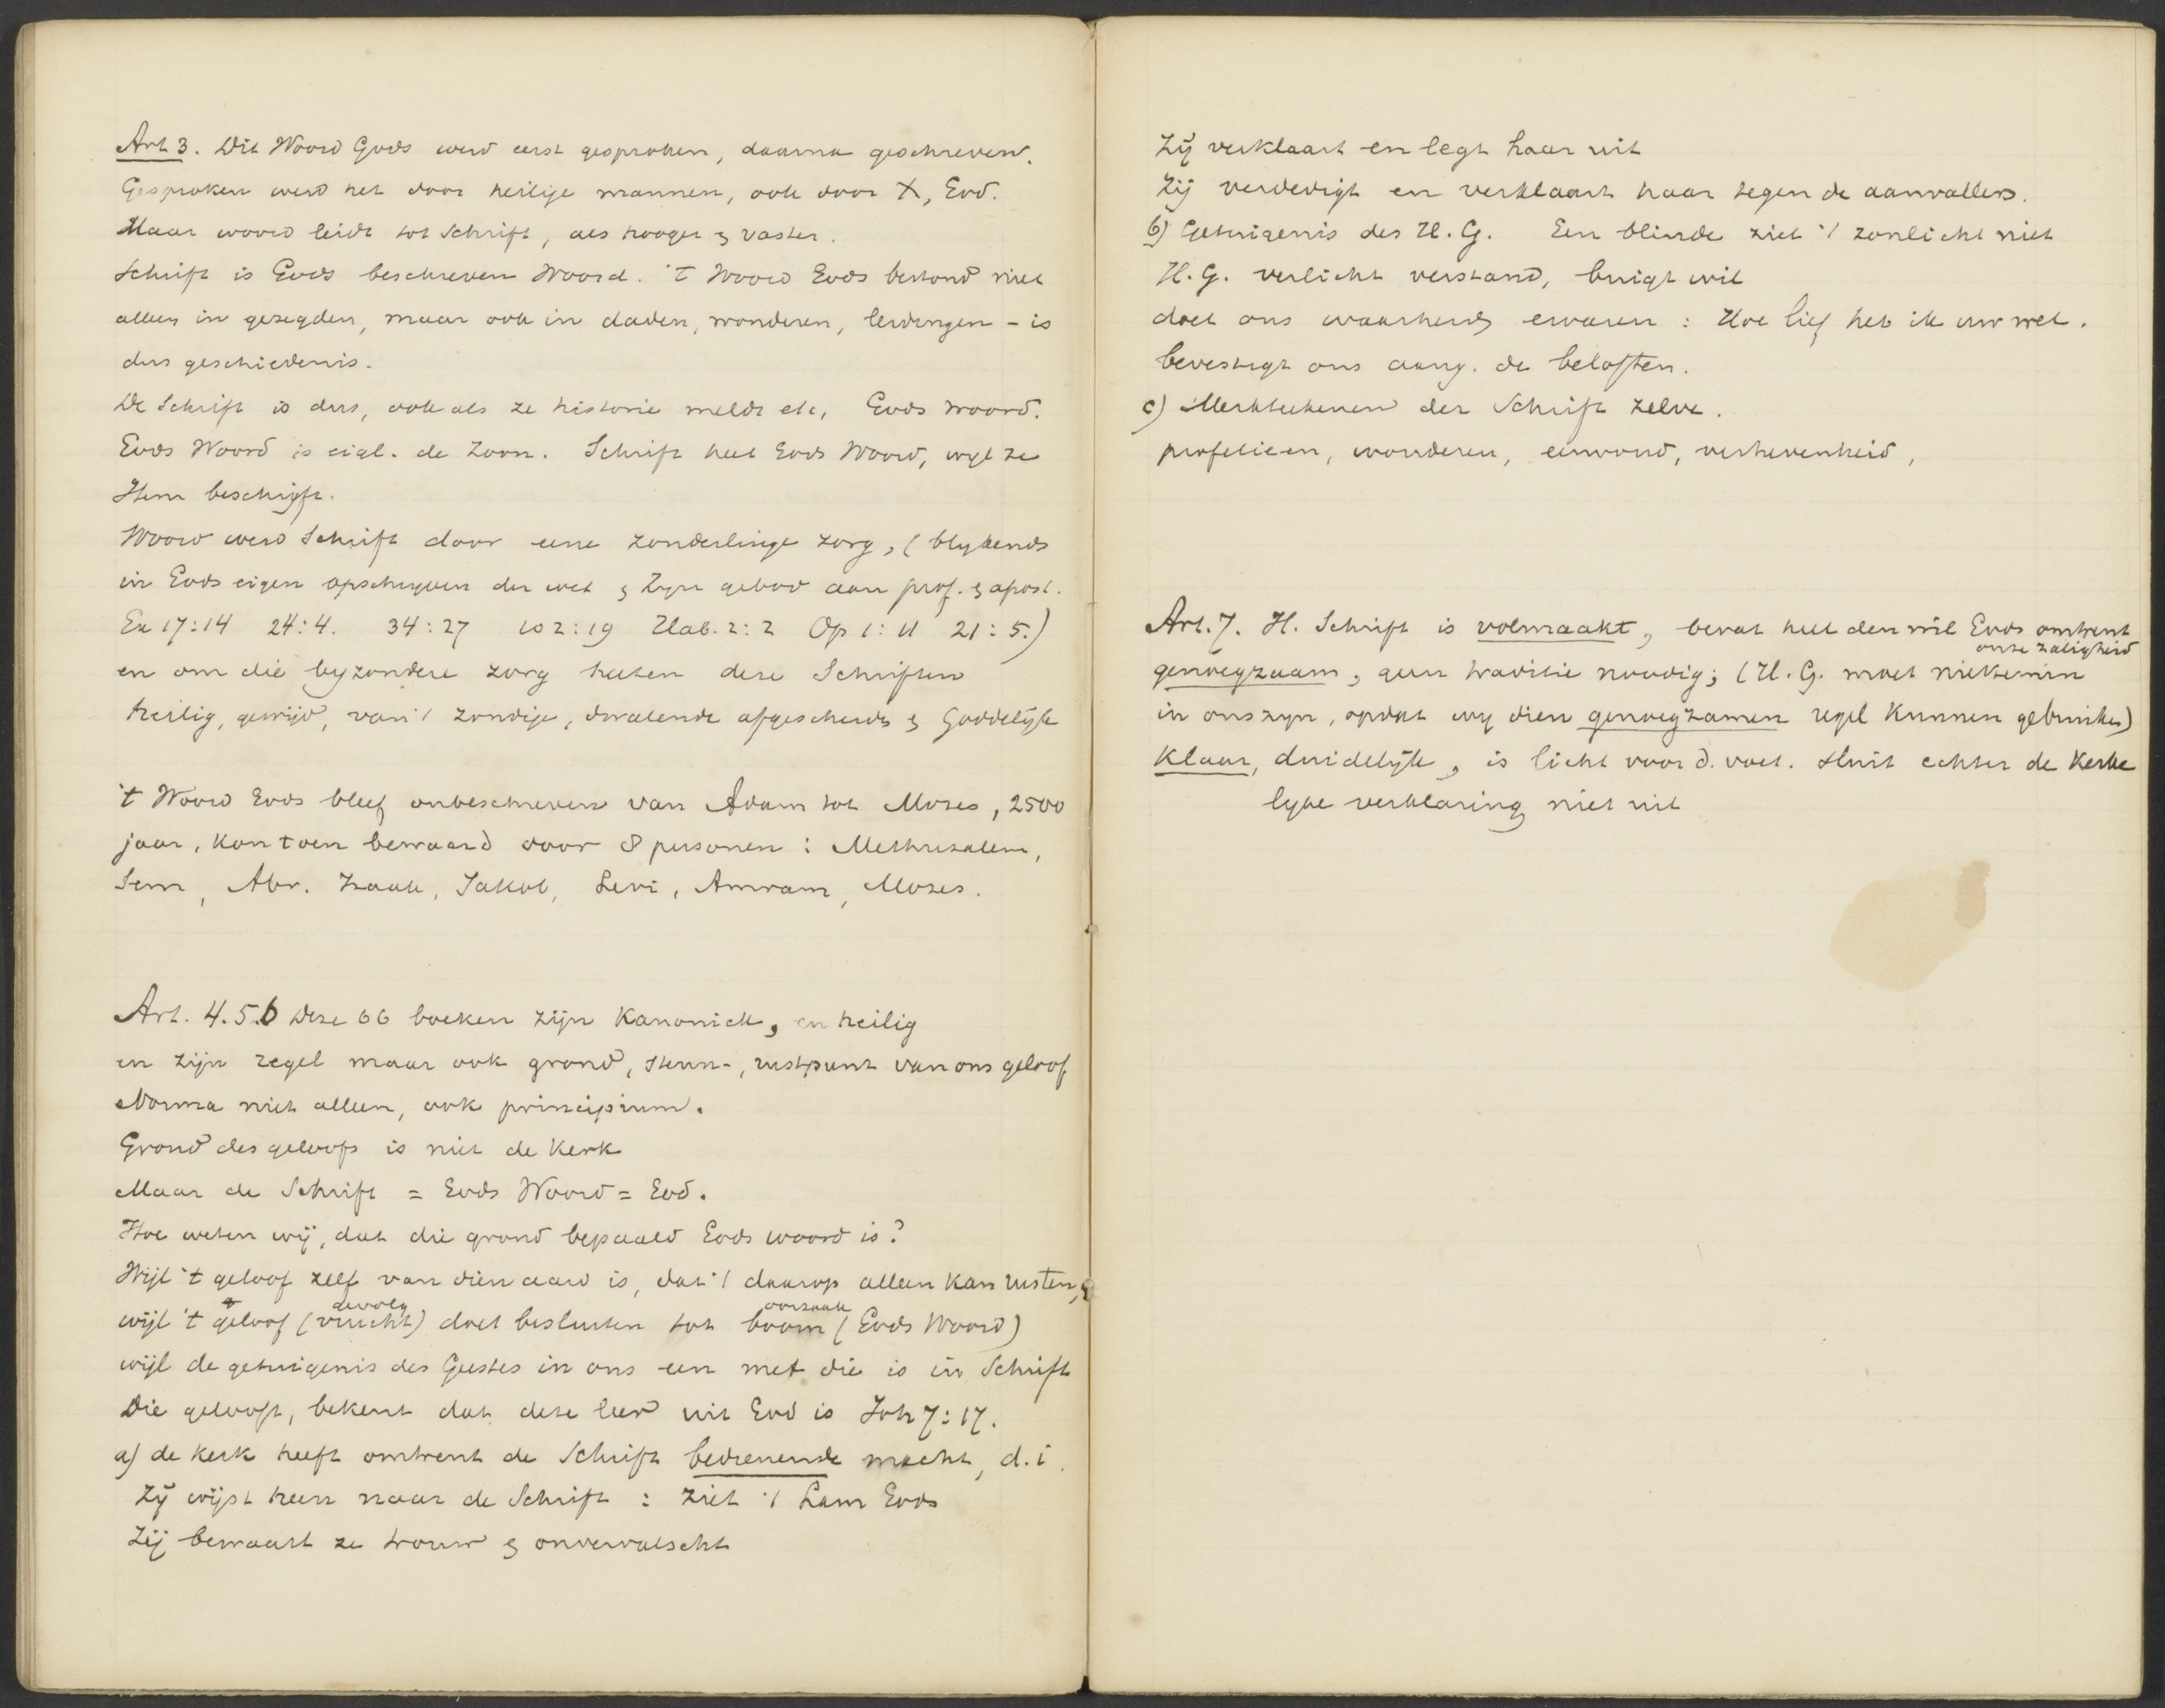 Art 3. Dit Woord Gods werd eerst gesproken, daarna geschreven.
Gesproken werd het door heilige mannen, ook door X, God.
Maar woord leidt tot Schrift, als hooger & vaster.
Schrift is Gods beschreven Woord. 't Woord Gods bestond niet
alleen in gezegden, maar ook in daden, wonderen, leidingen - is
dus geschiedenis.
De Schrift is dus, ook als ze historie meldt etc, Gods woord.
Gods Woord is eigl. de Zoon. Schrift heet Gods Woord, wijl ze
Hem beschrijft.
Woord werd Schrift door eene zonderlinge zorg, (blijkende
in Gods eigen opschrijven der wet & Zijn gebod aan prof. & apost.
Ex 17:14 24:4. 34:27 2:19 Hab. 2:2 Op 1:11 21:5.)
en om die byzondere zorg heeten deze Schriften
heilig, gewijd, van 't zondige, dwalende afgescheiden & Goddelijk
't Woord Gods bleef onbeschreven van Adam tot Mozes, 2500
jaar, kon toen bewaard door 8 personen: Methusalem,
Sem, Abr. Izaak, Jakob, Levi, Amram, Mozes.
Art. 4.5.6 Deze 66 boeken zijn Kanoniek, en heilig
en zijn regel maar ook grond, steun-, rustpunt van ons geloof
Norma niet alleen, ook principium.
Grond des geloofs is niet de Kerk
Maar de Schrift = Gods Woord = God.
Hoe weten wij, dat die grond bepaald Gods woord is?
Wijl 't geloof zelf van dien aard is, dat 't daarop alleen kan rusten, &
gevolg oorzaak
wijl 't geloof (vrucht) doet besluiten tot boom (Gods Woord)
wijl de getuigenis des Geestes in ons een met die is in Schrift
Die gelooft, bekent dat deze leer uit God is Joh 7:17.
a) de Kerk heeft omtrent de Schrift bedienende macht, d.i.
Zij wijst heen naar de Schrift: ziet 't Lam Gods
Zij bewaart ze trouw & onvervalscht
Zij verklaart en legt haar uit
Zij verdedigt en verklaart haar tegen de aanvallers.
b) Getuigenis des H.G. Een blinde ziet 't zonlicht niet
H.G. verlicht verstand, buigt wil
doet ons waarheid ervaren: Hoe lief heb ik uw wet.
bevestigt ons aang. de beloften.
c) Merkteekenen der Schrift zelve.
profetieen, wonderen, eenvoud, verhevenheid,
Art. 7. H. Schrift is volmaakt, bevat heel den wil Gods omtrent
onze zaligheid
genoegzaam, geen traditie noodig; (H.G. moet niettemin
in ons zijn, opdat wij dien genoegzamen regel kunnen gebruiken)
Klaar, duidelijk, is licht voor d. voet. sluit echter de Kerke
lijke verklaring niet uit